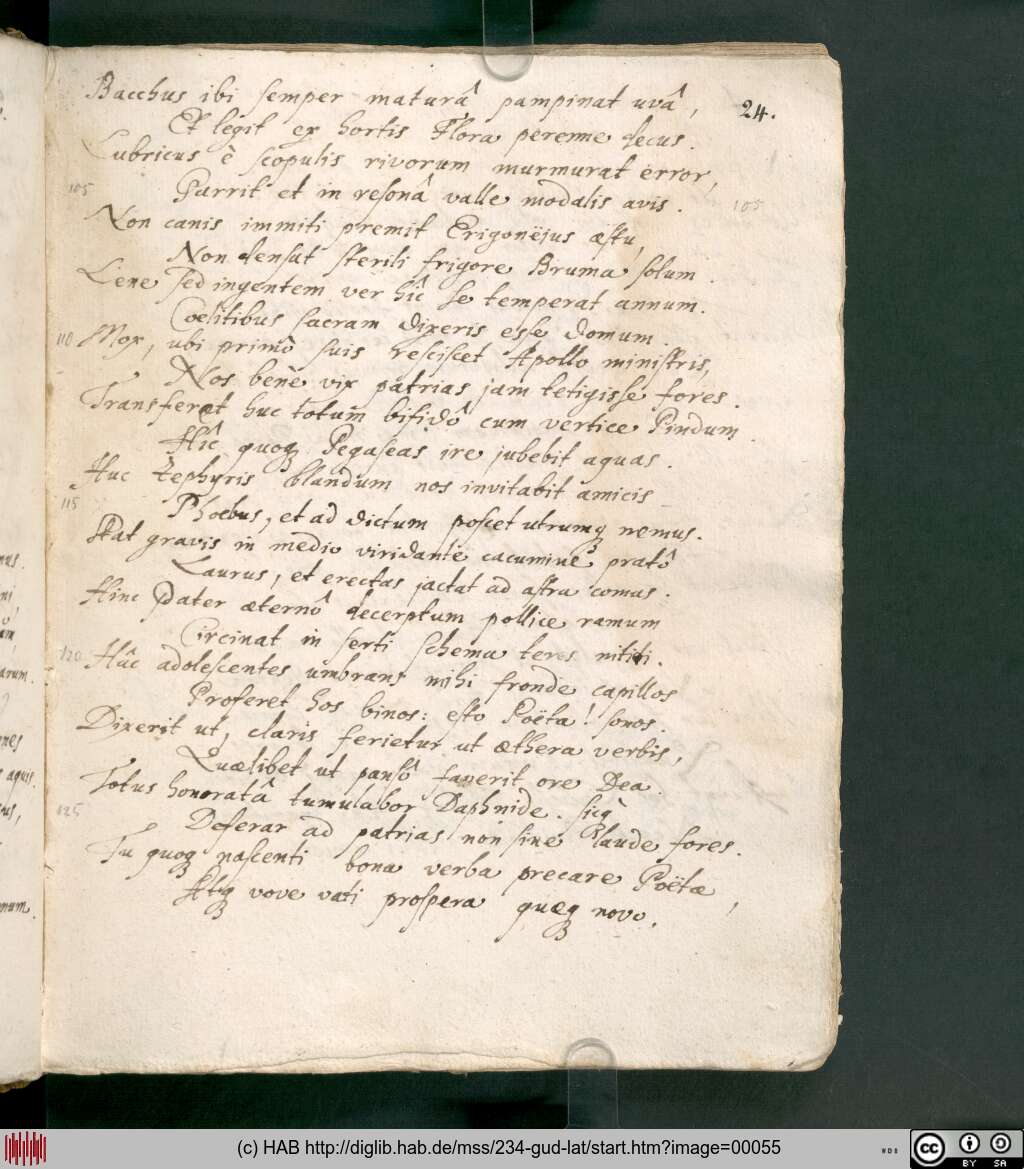 24.
Bacchus ibi semper maturâ pampinat uvâ,
Et legit ex hortis Flora perenne decus.
Lubricus è scopulis rivorum murmurat error,
105 Garrit et in resonâ valle modalis avis. 105
Non canis immiti premit Erigonëjus æstu,
Non densat sterili frigore Bruma solum.
Lene sed ingentem ver hîc se temperat annum.
Coelitibus sacram dixeris esse domum.
110 Mox, ubi primò suis resciscet Apollo ministris,
Nos benè vix patrias jam tetigisse fores.
Transferet huc totum bifidô cum vertice Pindum.
Hîc quoq Pegaseas ire jubebit aquas.
Huc Zephyris blandum nos invitabit amicis
115 Phoebus, et ad dictum poscet utrumq nemus.
Stat gravis in medio viridante cacumine pratô
Laurus, et erectas jactat ad astra comas.
Hinc Pater æternô decerptum pollice ramum
Circinat in serti schema teres nitidi.
120 Hâc adolescentes umbrans mihi fronde capillos
Proferet hos binos: esto Poëta! sonos.
Dixerit ut, claris ferietur ut æthera verbis,
Quælibet ut pansô faverit ore Dea.
Totus honoratâ tumulabor Daphnide. sicq
125 Deferar ad patrias non sine laude fores.
Tu quoq nascenti bona verba precare Poëtæ,
Atq vove vati prospera quæq novo.
(c) HAB http://diglib.hab.de/mss/234-gud-lat/start.htm?image=00055
WDB
cc BY SA